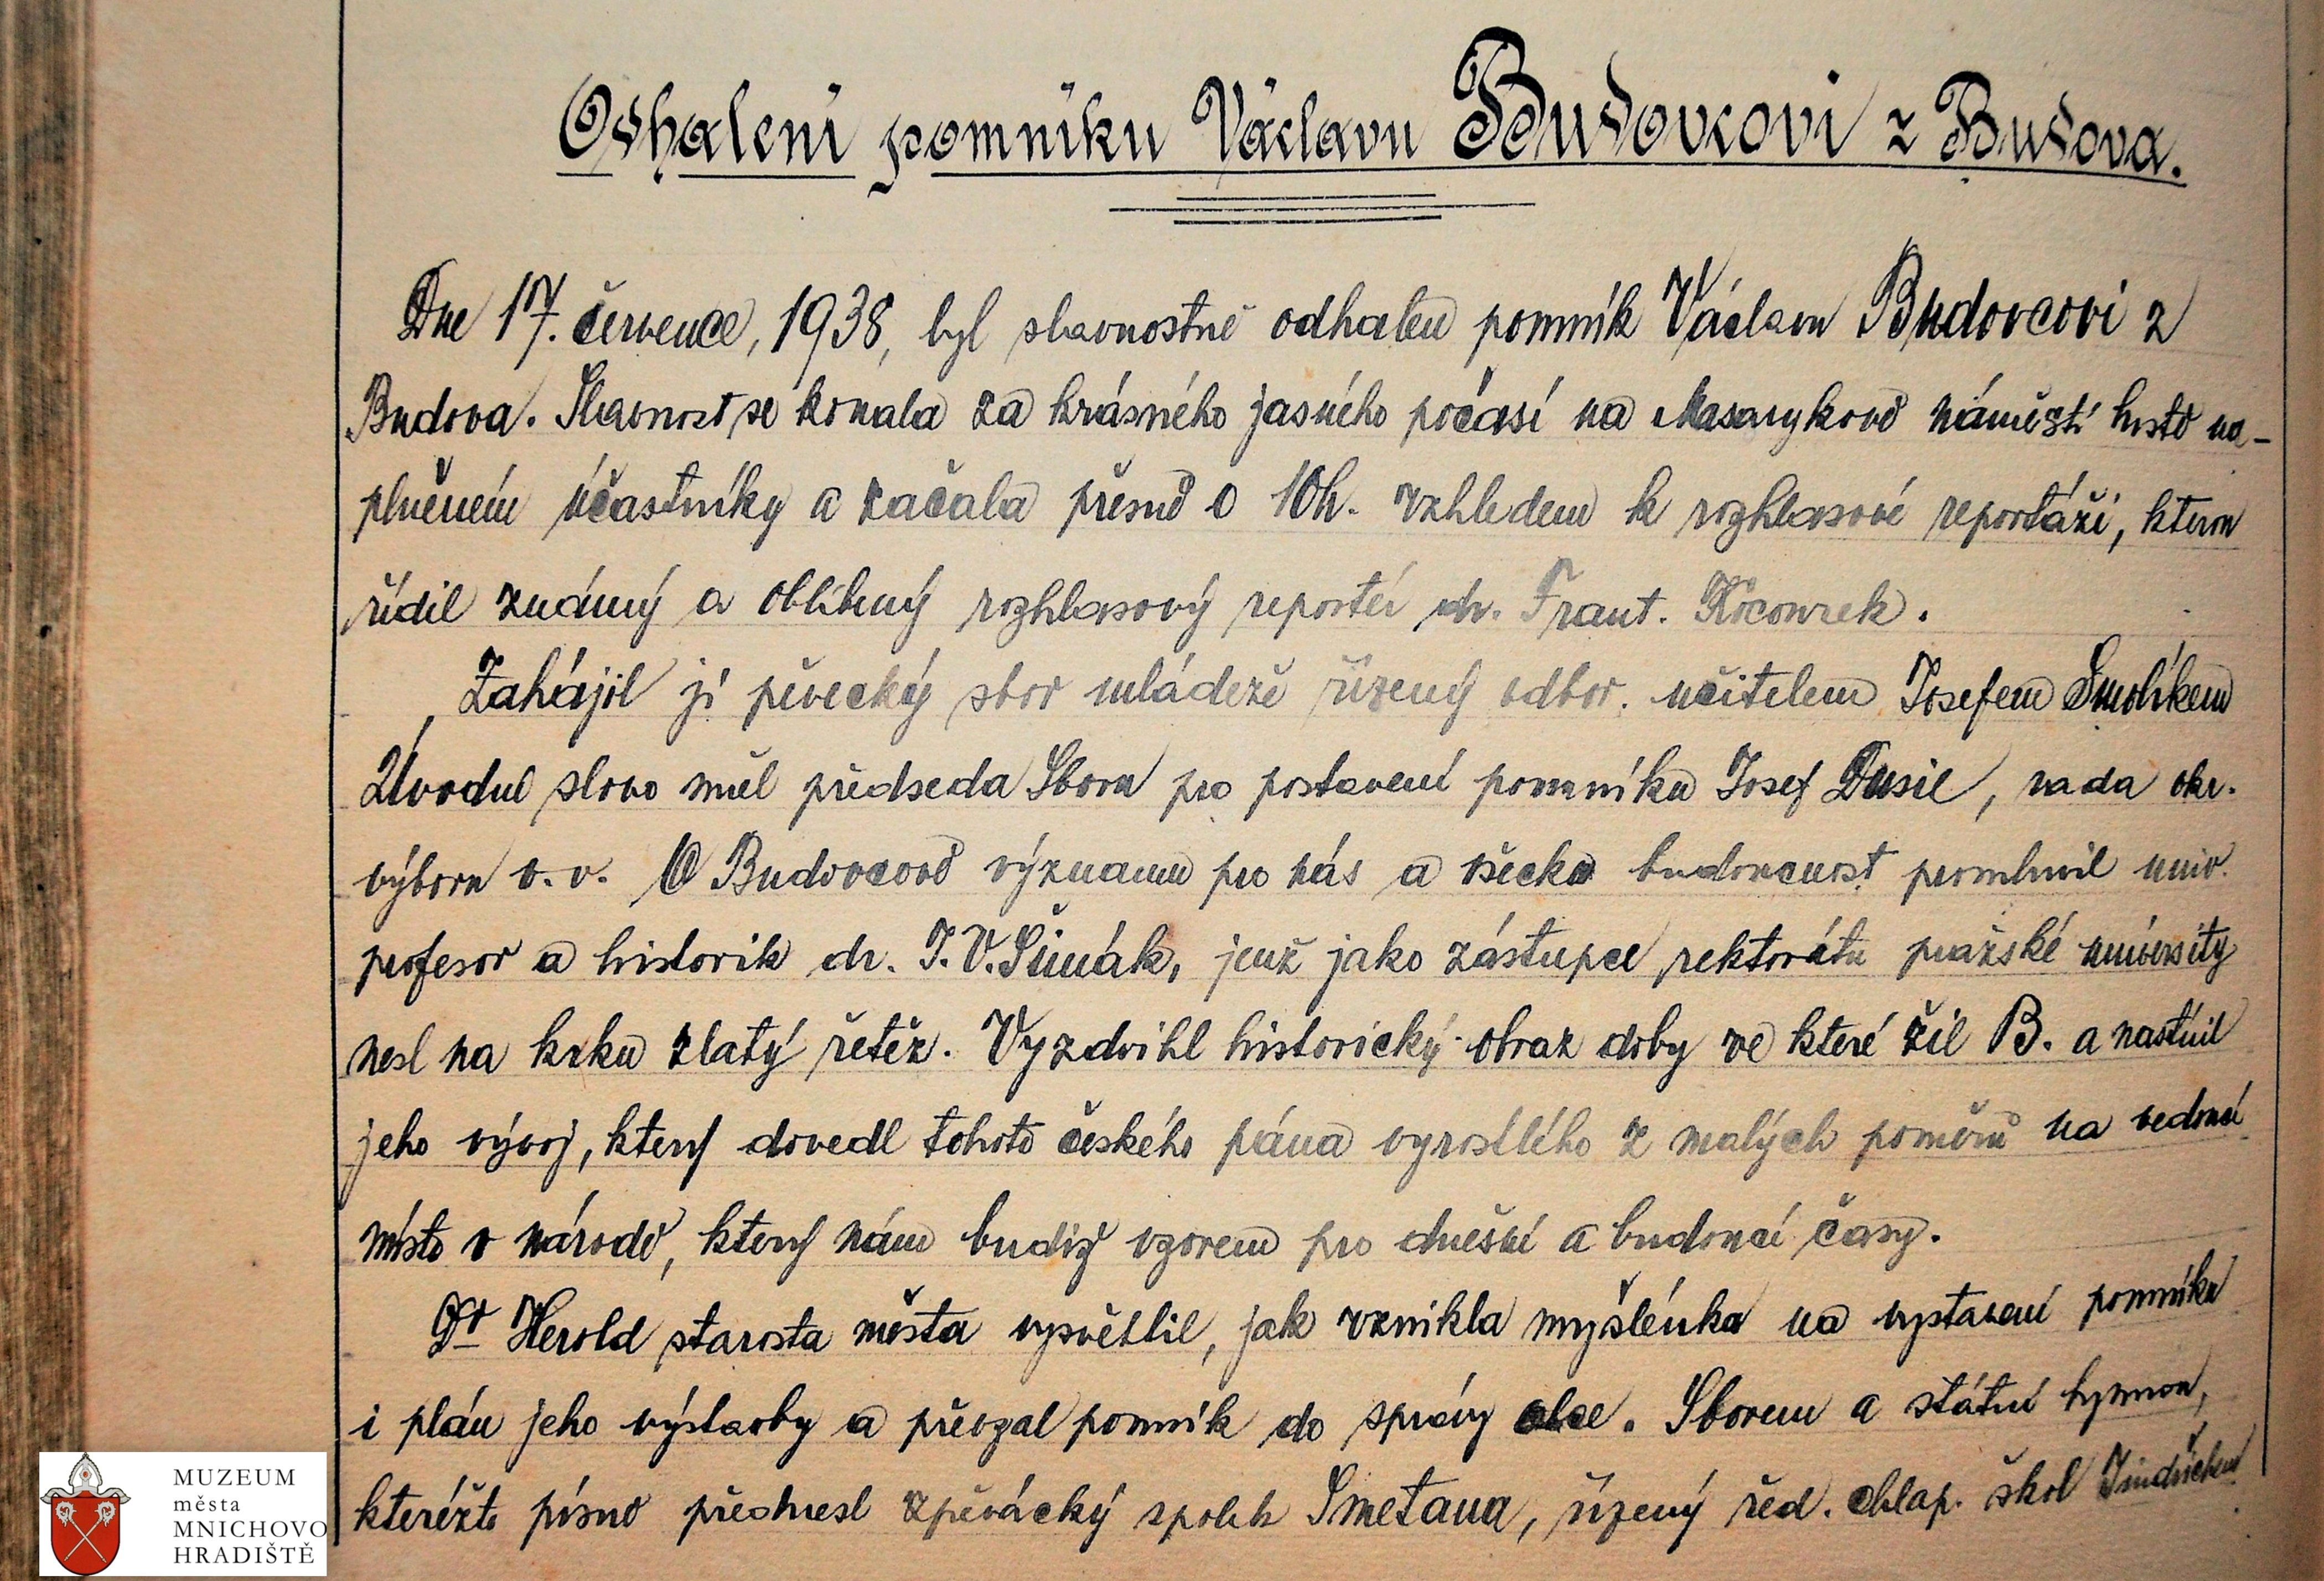 Odhalení pomníku Václavu Budovcovi z Budova.
Dne 17. července, 1938, byl slavnostně odhalen pomník Václavu Budovcovi z
Budova. Slavnost se konala za krásného jasného počasí na Masarykově náměstí hustě na-
plněném účastníky a začala přesně o 10h. vzhledem k rozhlasové reportáži, kterou
řídil známý a oblíbený rozhlasový reportér dr. Frant. Kocourek.
Zahájil ji pěvecký sbor mládeže řízený odbor. učitelem Josefem Smolíkem
Úvodní slovo měl předseda Sboru pro postavení pomníku Josef Dusil, rada okr.
výboru v. v. O Budovcově významu pro nás a všecku budoucnost promluvil univ.
profesor a historik dr. J. V. Šimák, jenž jako zástupce rektorátu pražské university
nesl na krku zlatý řetěz. Vyzdvihl historický obraz doby ve které žil B. a nastínil
jeho vývoj, který dovedl tohoto českého pána vyrostlého z malých poměrů na vedoucí
místo v národě, který nám budiž vzorem pro dnešní a budoucí časy.
Dr Herold starosta města vysvětlil, jak vznikla myšlénka na vystavení pomníku
i plán jeho výstavby a převzal pomník do správy obce. Sborem a státní hymnou,
kteréžto písně přednesl zpěvácký spolek Smetana, řízený řed. chlap. škol Jindřichem
MUZEUM
města
MNICHOVO
HRADIŠTĚ